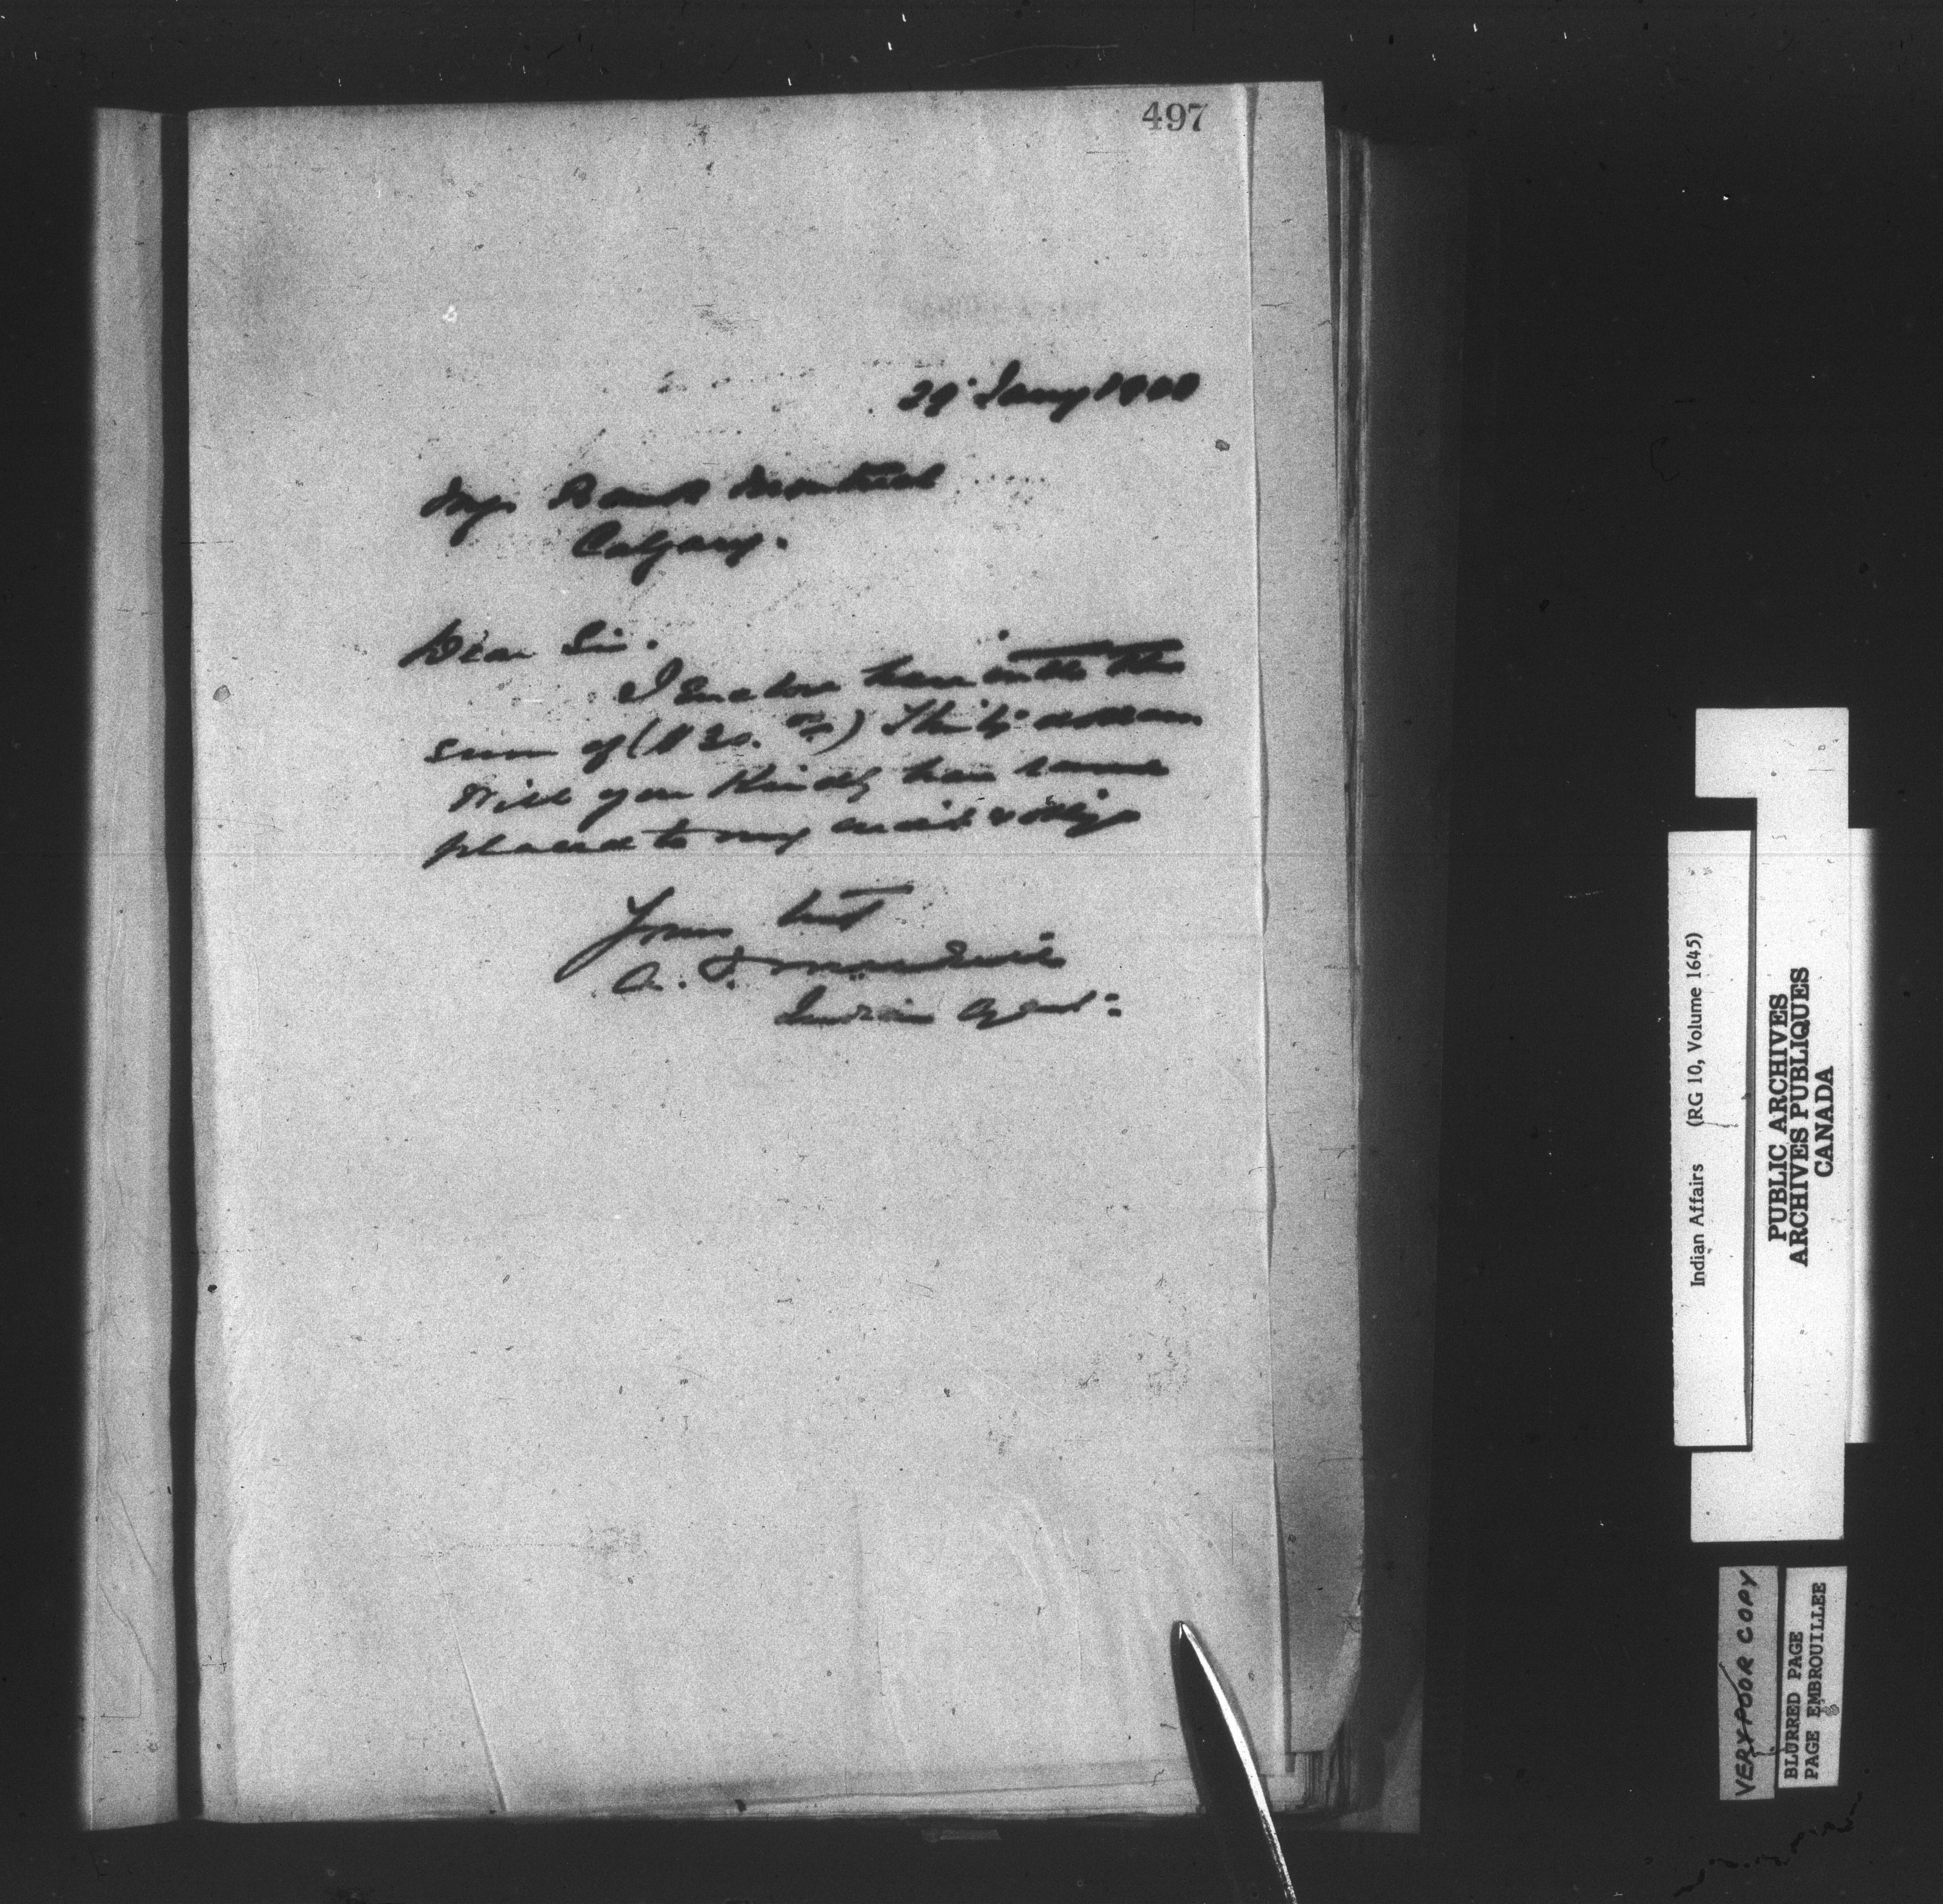 497
29 Jany 1900
Mgr Bank Montreal
Calgary.
Dear Sir.
I Enclose herewith the
sum of ($30. 00) Thirty dollars
Will you Kindly have same
placed to my credit & oblige
Yours
A.
Indian Agent
Indian Affairs (RG 10, Volume 1645)
PUBLIC ARCHIVES
ARCHIVES PUBLIQUES
CANADA
VERY POOR COPY
BLURRED PAGE
PAGE EMBROUILLEE